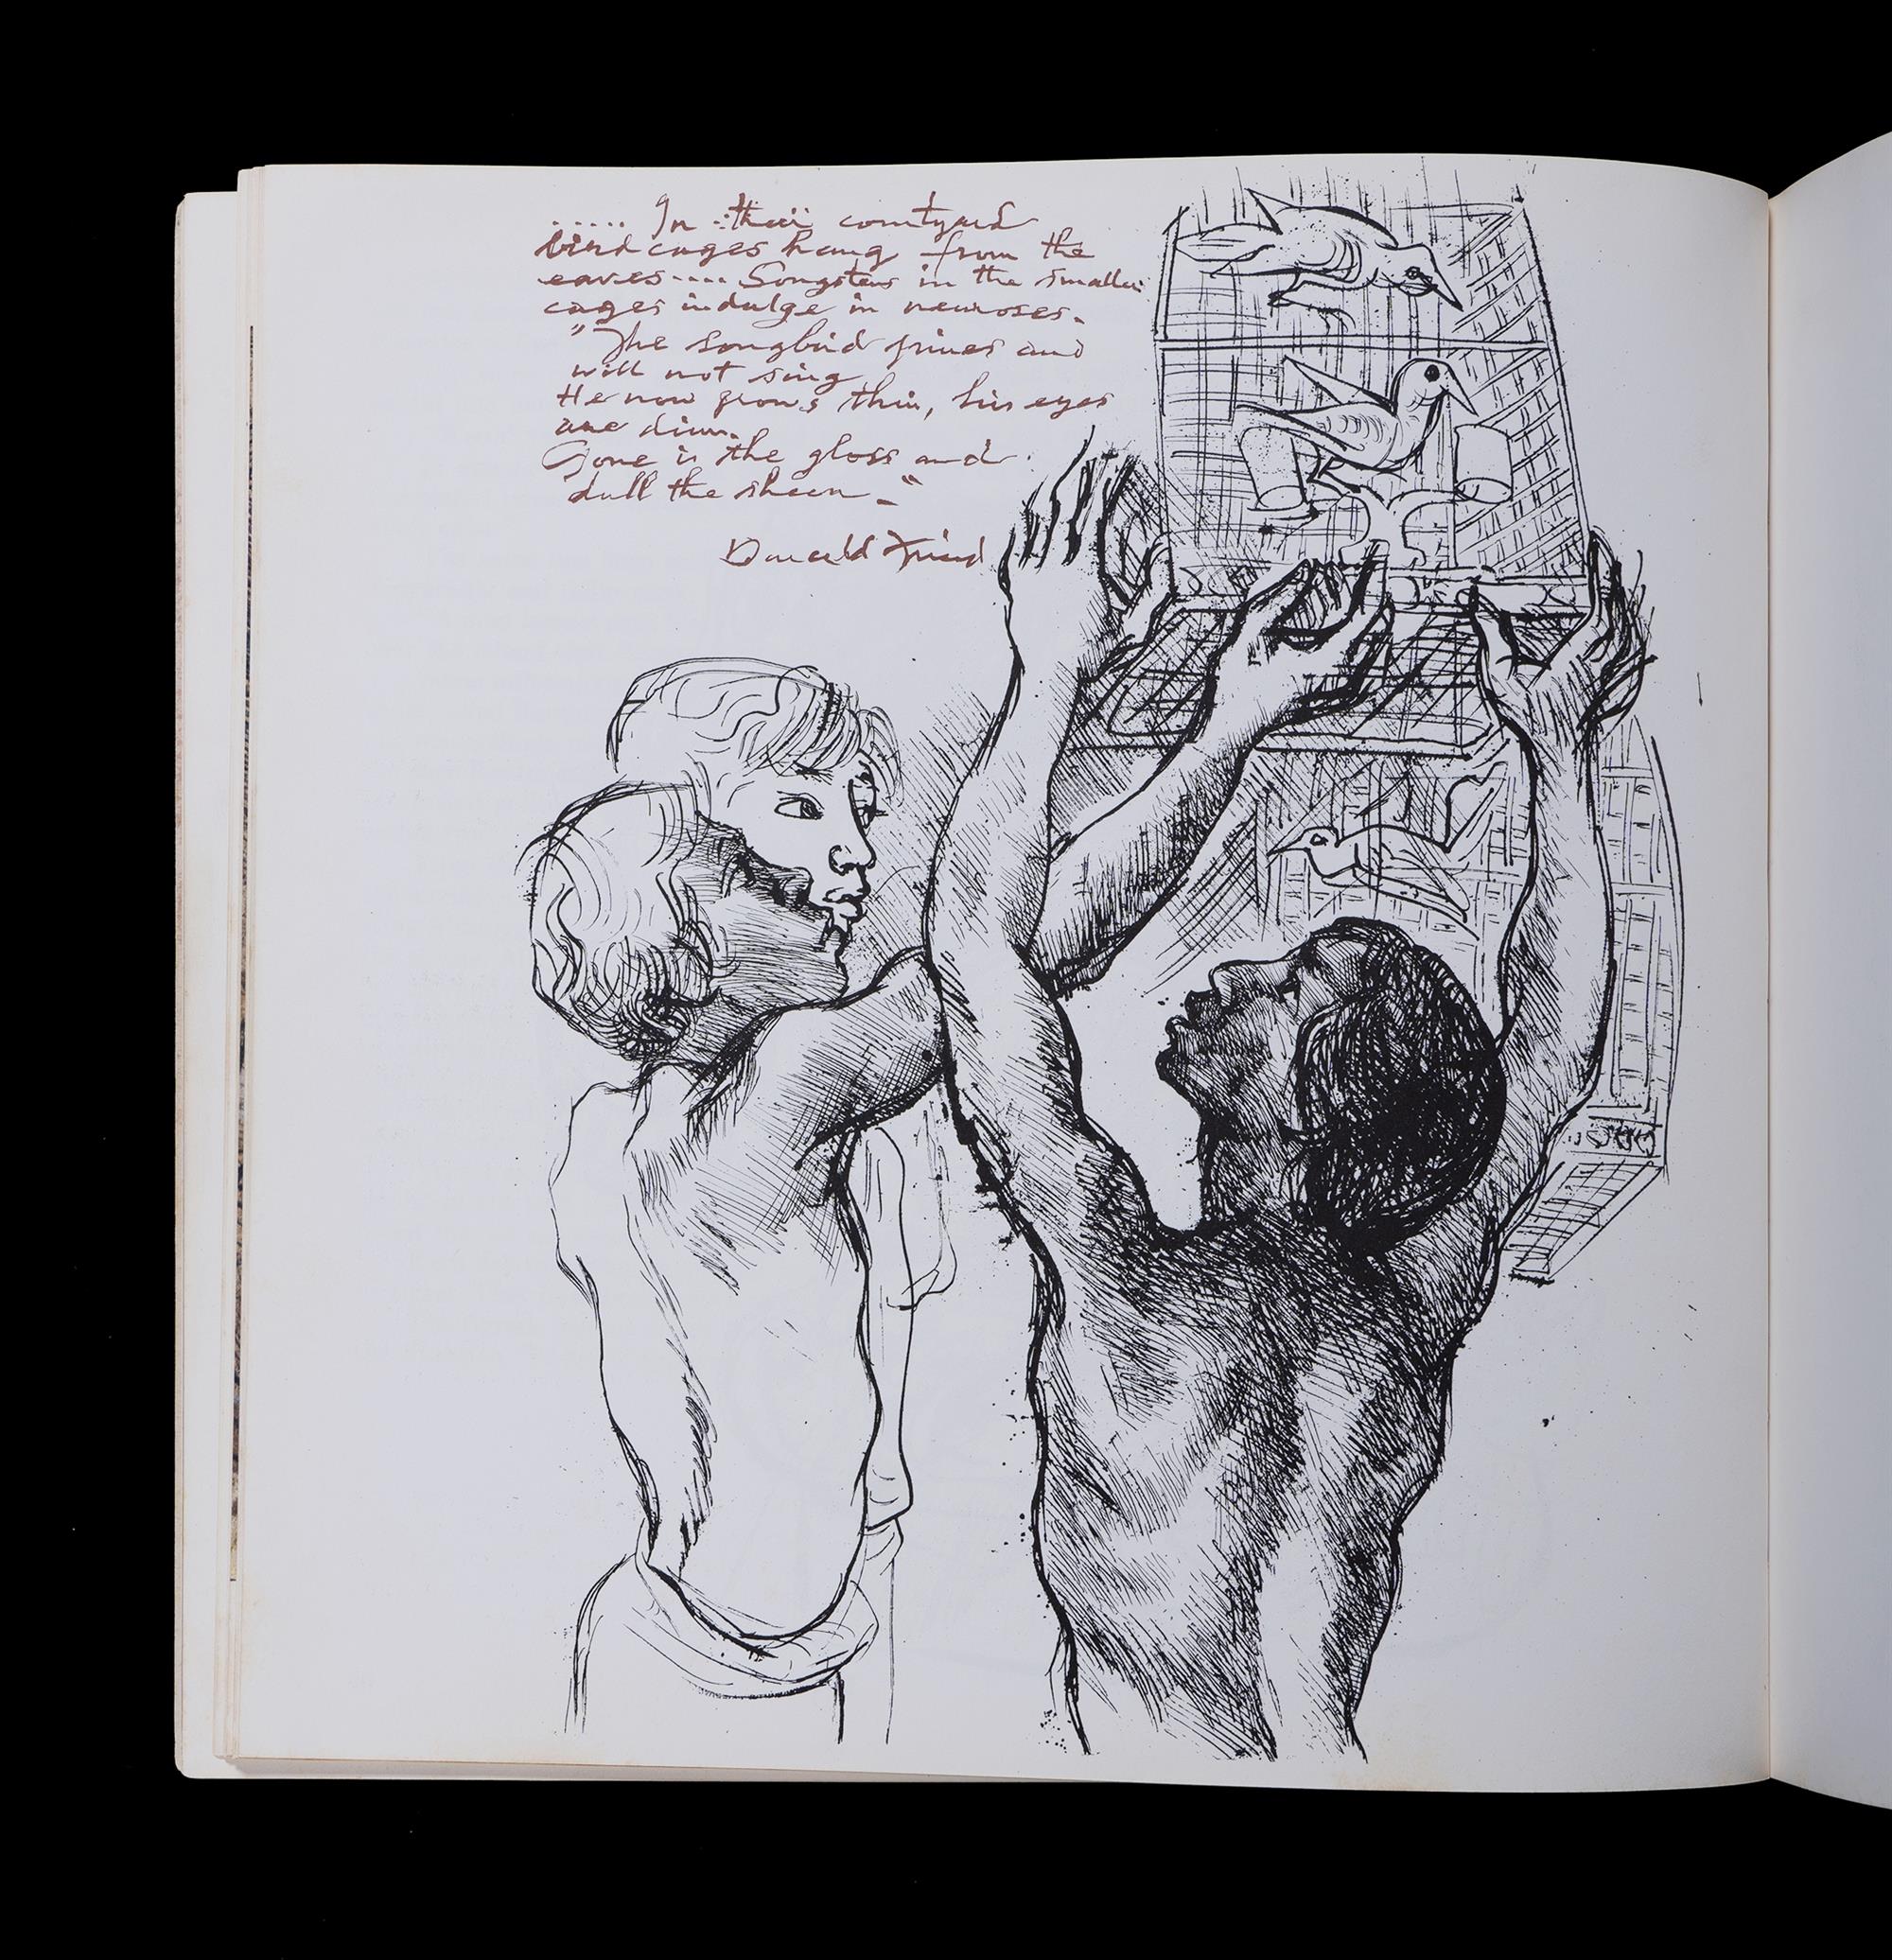 ...... In their courtyard
bird cages hang from the
eaves.... Songsters in the smaller
cages indulge in neuroses.
"The songbird pines and
will not sing
He now grows thin, his eyes
are dim.
Gone is the gloss and
dull the sheen -"
Donald Friend